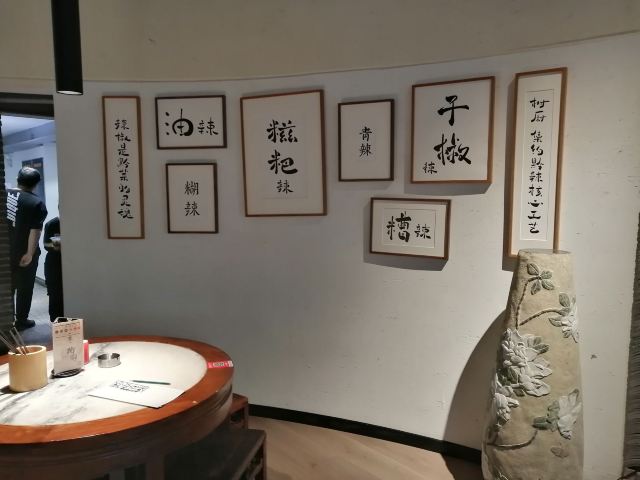 辣椒是黔菜的灵魂
油辣
糊辣
糍粑
辣
青辣
子椒
辣
糟辣
村厨 集约黔辣核心工艺